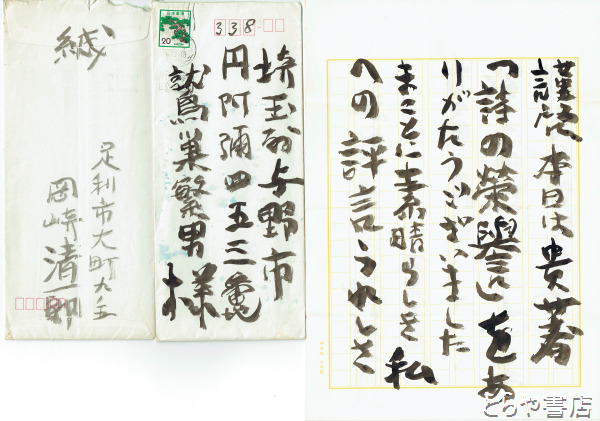 緘
足利市大町九ノ五
岡崎清一郎
20
338
埼玉県与野市
円阿彌四五三ノ
鷲巣繁男様
謹啓 本日は貴著
「詩の榮譽」をあ
りがたうございました
まことに素晴らしき 私
への評言うれしき
とらや書店